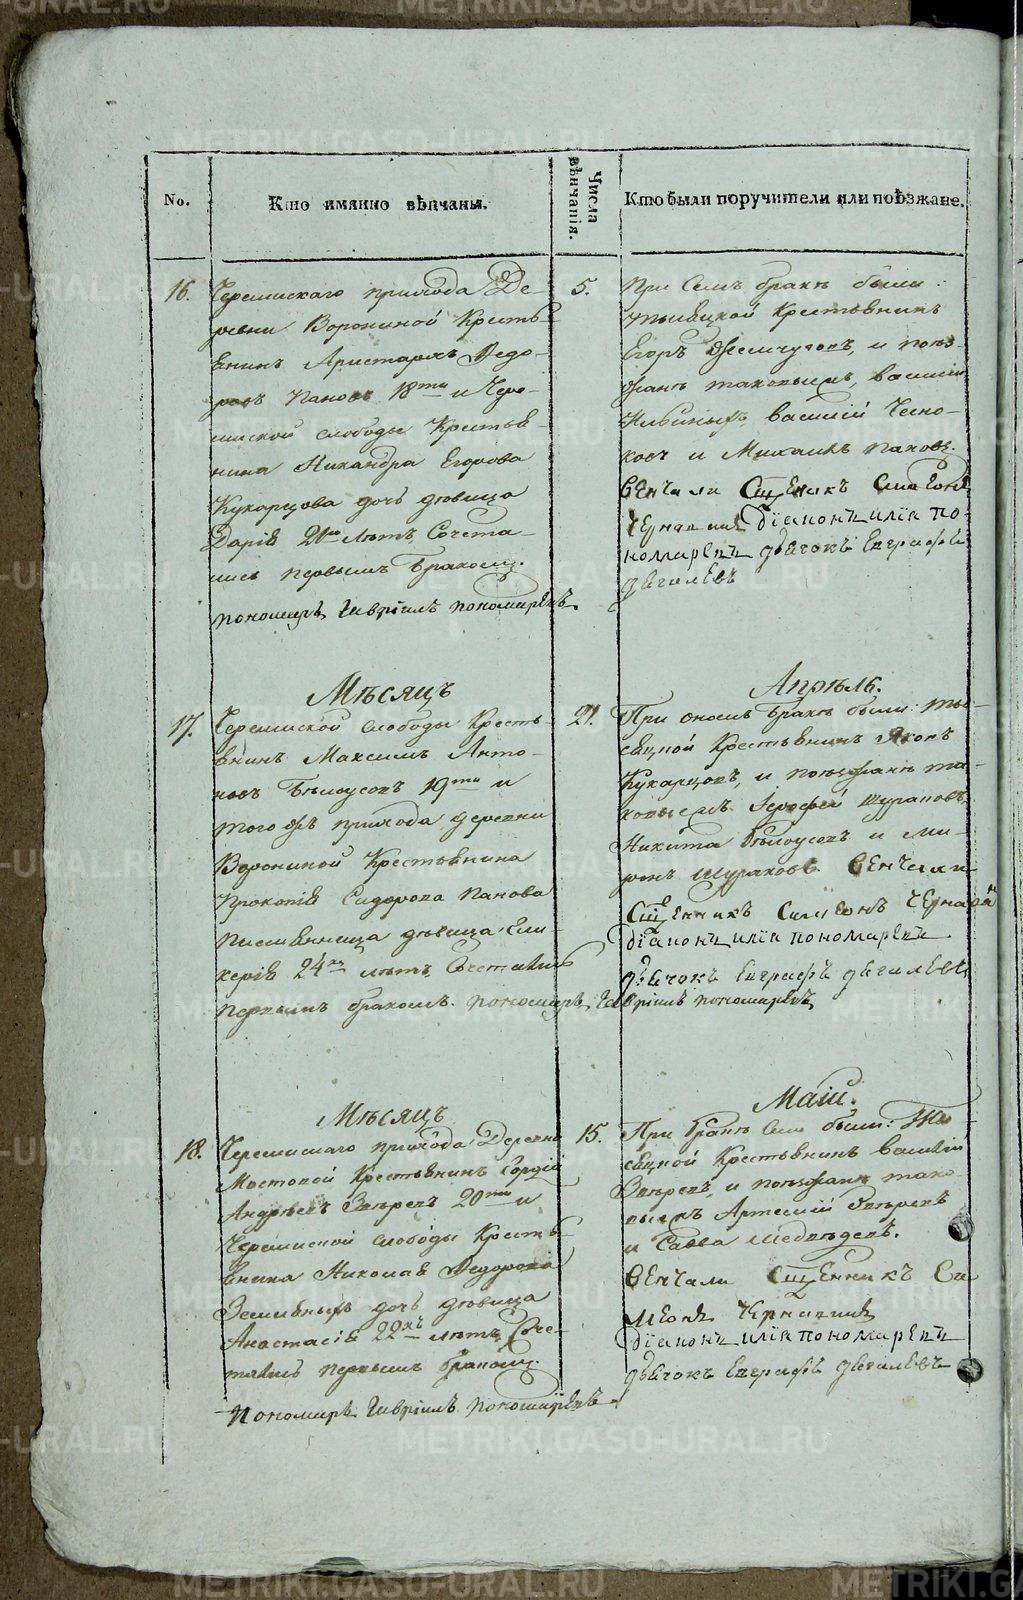 No.
Кто имянно вѣнчаны.
Числа вѣнчанія.
Кто были поручители или поѣзжане.
16.
Черемискаго прихода Де-
ревни Ворониной Кресть-
янинъ Аристархъ Ѳедо-
ровъ Пановъ 18ти и Чере-
миской слободы Крестья-
нина Никандра Егорова
Кухарцова дочь дѣвица
Дарія 21 лѣтъ Сочета-
лись первымъ бракомъ.
пономарь Гавріилъ пономаревъ
5.
При семъ бракѣ были:
тысяцкой Крестьянинъ
Егоръ Жемчуговъ, и поѣз-
жанъ таковымъ, василій
василій Чесно-
ковъ и Михаилъ пановъ.
вѣнчали Сщенникъ Симеонъ
Чернавинъ діаконъ илія по-
номаревъ дьячокъ Евграфъ
дягилевъ
Мѣсяцъ
Апрѣль.
17.
Черемиской слободы Кресть-
янинъ Максимъ Анто-
новъ Бѣлоусовъ 19ти и
того жъ прихода деревни
Ворониной Крестьянина
Прокопія Сидорова Панова
дѣвица Гли-
керія 24хъ лѣтъ, Сочетались
первымъ бракомъ. пономарь Гавріилъ пономаревъ
21.
При ономъ бракѣ были: ты-
сяцкой Крестьянинъ Яковъ
Кухарцовъ, и поѣзжанъ та-
ковымъ Ерофей Шураковъ,
Никита Бѣлоусовъ и Ми-
ронъ Шураковъ. вѣнчали
Сщенникъ Симеонъ Чернавин
діаконъ илія пономаревъ
дьячокъ Евграфъ дягилевъ
Мѣсяцъ
Маій.
18.
Черемискаго прихода Деревни
Мостовой Крестьянинъ Гордій
Андрѣевъ Звѣревъ 20ти и
Черемиской слободы Кресть-
янина Николая Ѳедорова
дочь дѣвица
Анастасія 22хъ лѣтъ, Соче-
тались первымъ бракомъ.
пономарь Гавріилъ пономаревъ
15.
При бракѣ семъ были: Ты-
сяцкой Крестьянинъ василій
Звѣревъ, и поѣзжанъ тако-
вымъ Артемій Звѣревъ
и Савва Медвѣдевъ.
вѣнчали Сщенникъ Си-
меонъ Чернавинъ
діаконъ илія пономаревъ
дьячокъ Евграфъ дягилевъ
METRIKI.GASO-URAL.RU